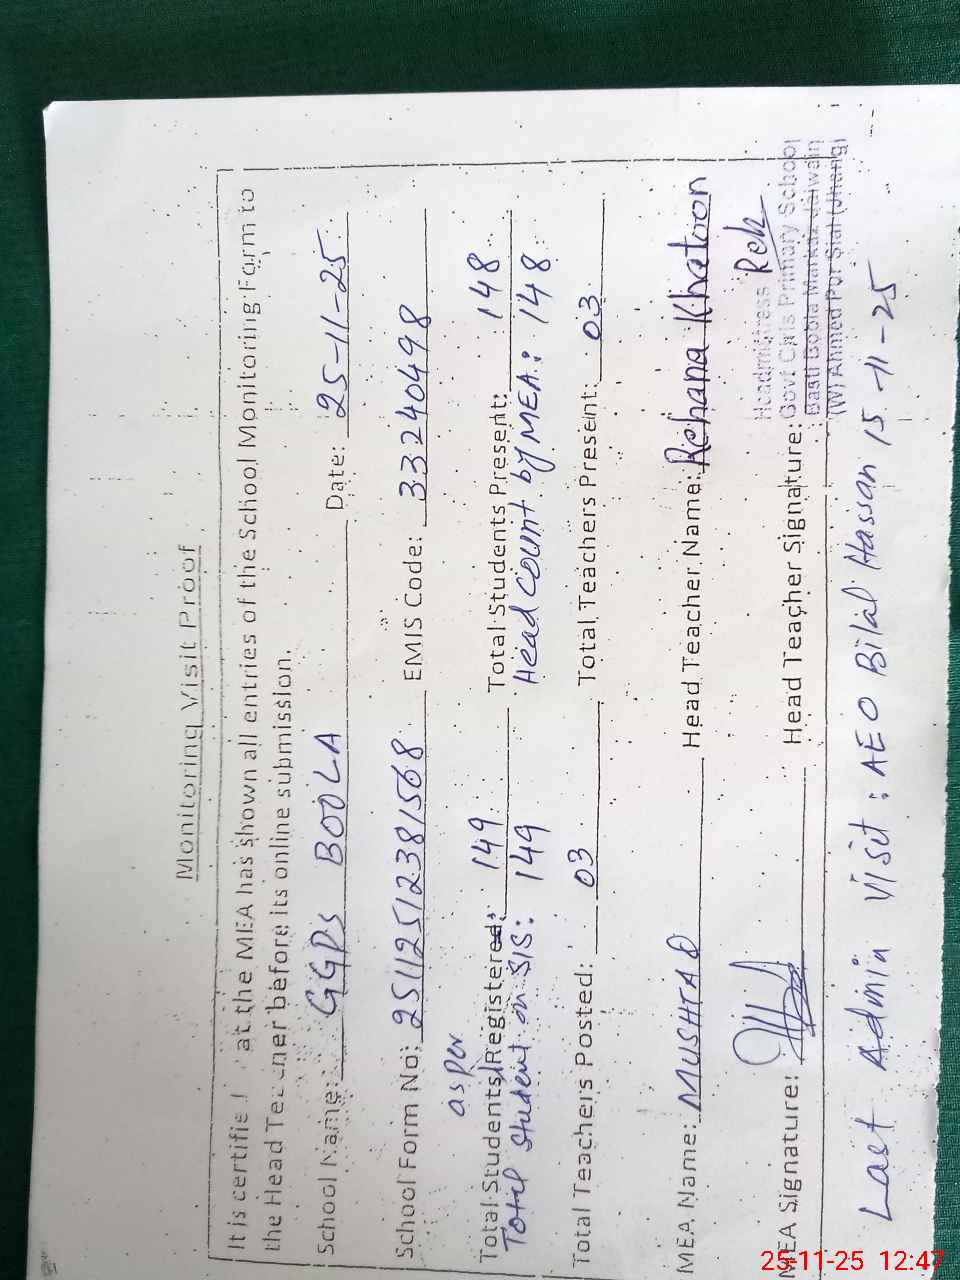 Monitoring Visit Proof
at the MEA has shown all entries of the School Monitoring Form to
the Head before its online submission.
School Name: GGPS BOOLA Date: 25-11-25
School Form No: 2511251238 1568 EMIS Code: 33240498
as per
Total Students Registered: 149 Total Students Present: 148
Total Student on SIS: 149 Head Count by MEA: 148
Total Teachers Posted: 03 Total Teachers Present: 03
MEA Name: MUSHTAQ Head Teacher Name: Rehana Khatoon
Headmistress
Govt Girls Primary School
Basti Boola Markaz
(W) Ahmed Pur Sial (Jhang)
MEA Signature: Head Teacher Signature:
Last Admin Visit: AEO Bilal Hassan 15-11-25
25-11-25 12:47